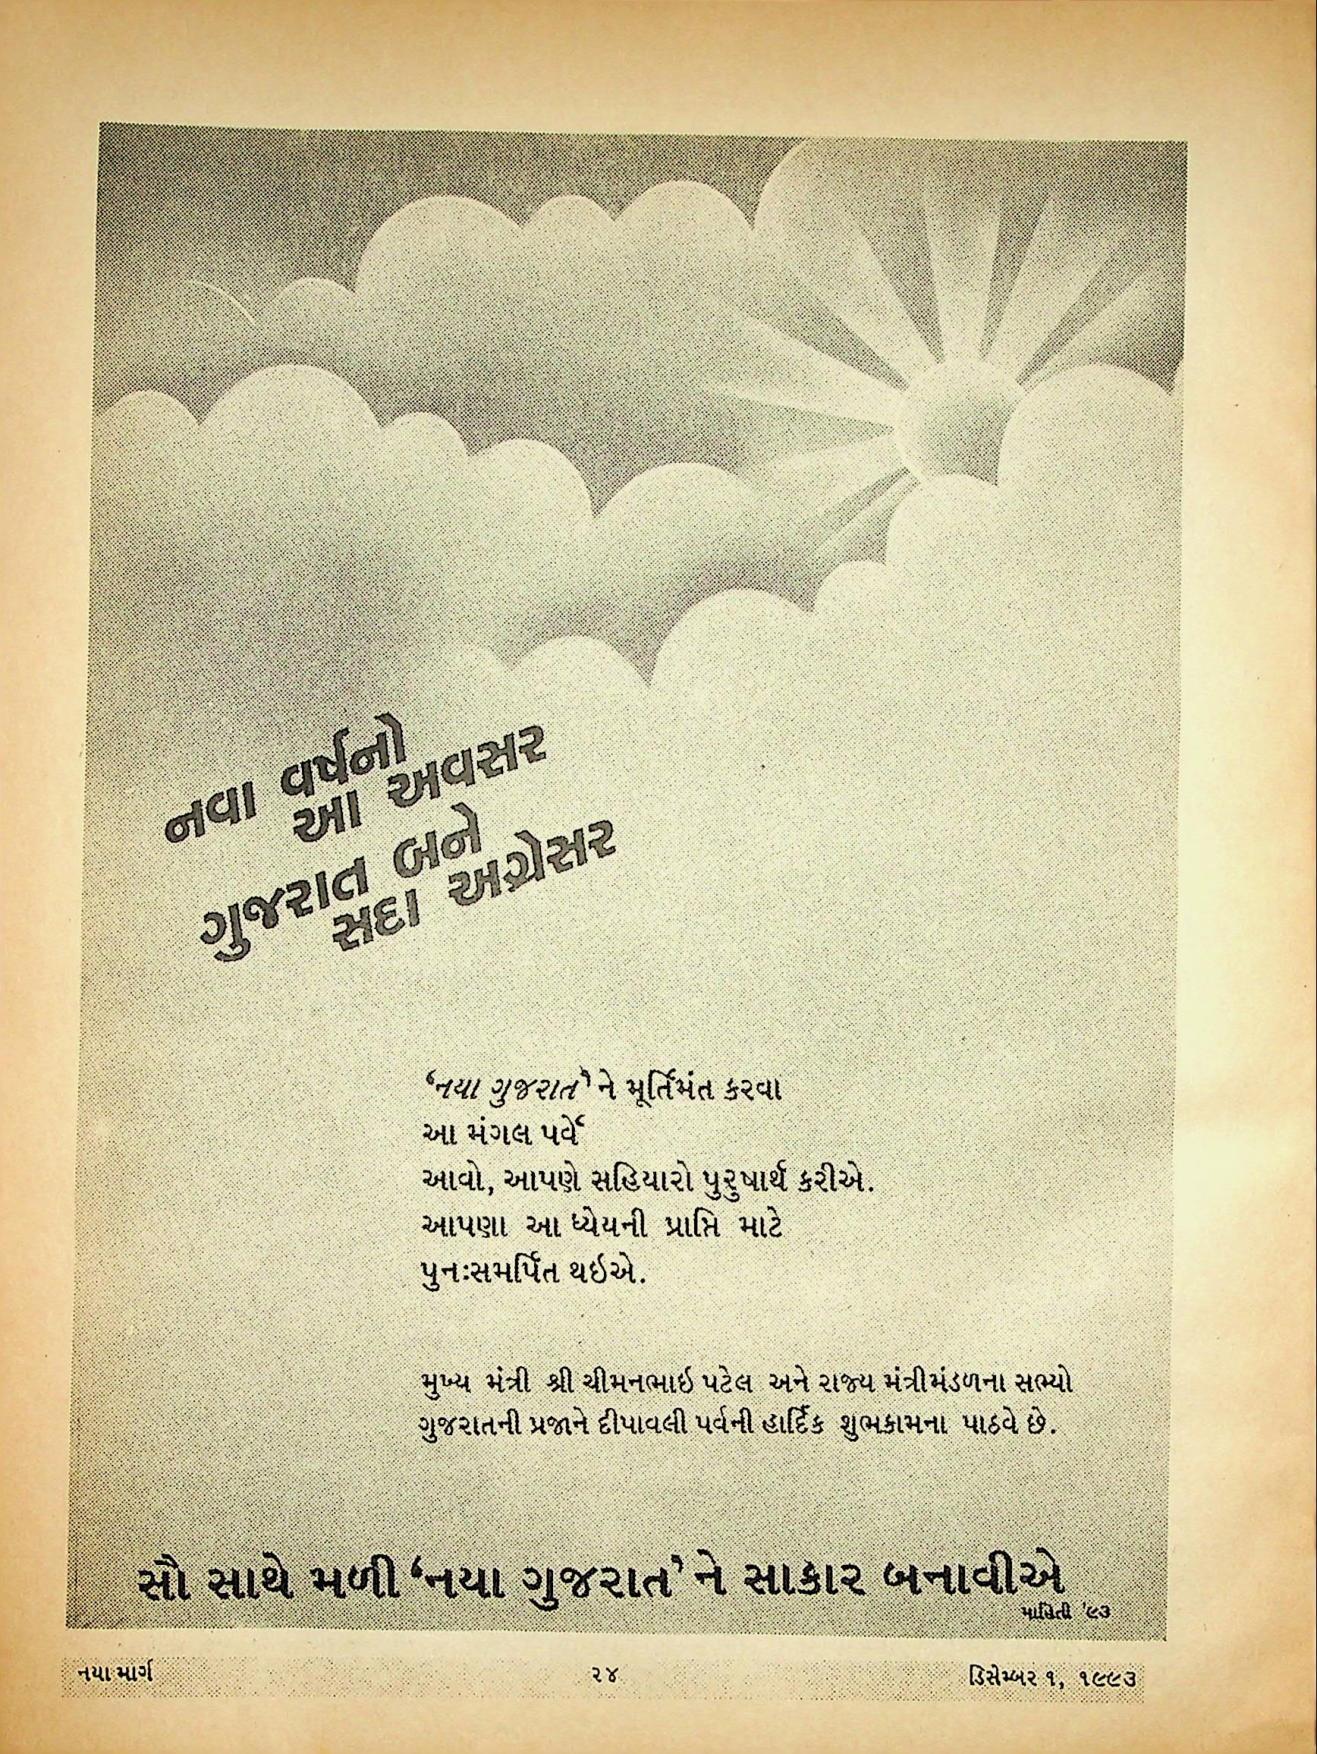 નવા વર્ષનો
આ અવસર
ગુજરાત બને
સદા અગ્રેસર
‘નયા ગુજરાત’ ને મૂર્તિમંત કરવા
આ મંગલ પર્વે
આવો, આપણે સહિયારો પુરુષાર્થ કરીએ.
આપણા આ ધ્યેયની પ્રાપ્તિ માટે
પુનઃસમર્પિત થઇએ.
મુખ્ય મંત્રી શ્રી ચીમનભાઇ પટેલ અને રાજ્ય મંત્રીમંડળના સભ્યો
ગુજરાતની પ્રજાને દીપાવલી પર્વની હાર્દિક શુભકામના પાઠવે છે.
સૌ સાથે મળી ‘નયા ગુજરાત’ ને સાકાર બનાવીએ
માહિતી '૯૩
નયા માર્ગ ૨૪ ડિસેમ્બર ૧, ૧૯૯૩